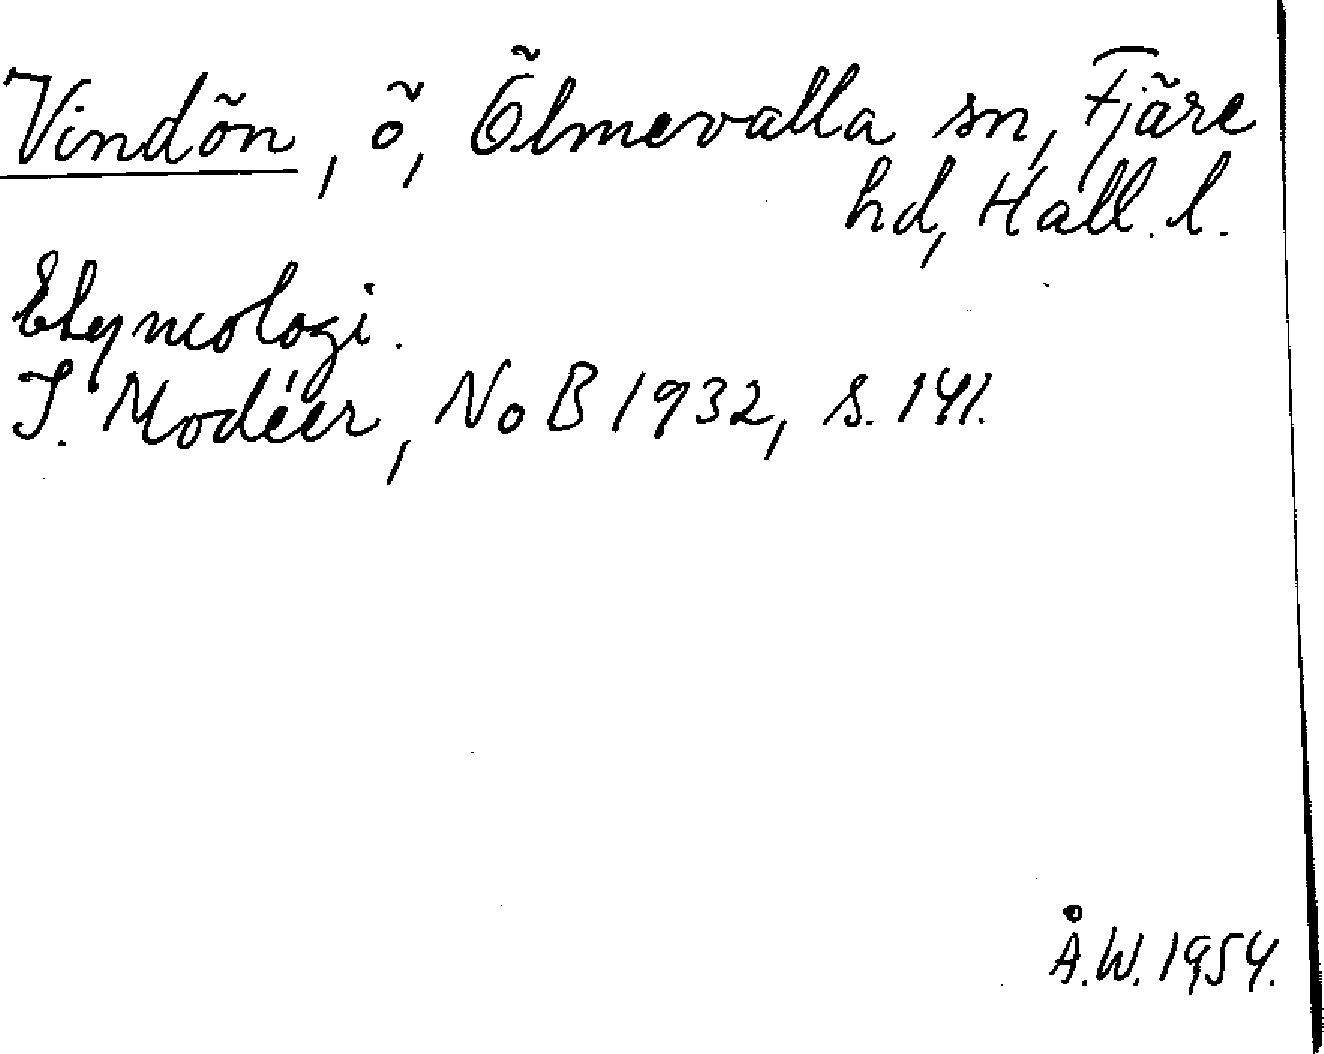 Vindön, ö, Ölmevalla sn, Fjäre
hd, Hall. l.
Etymologi.
I. Modéer, NoB 1932, s. 141.
Å.W. 1954.